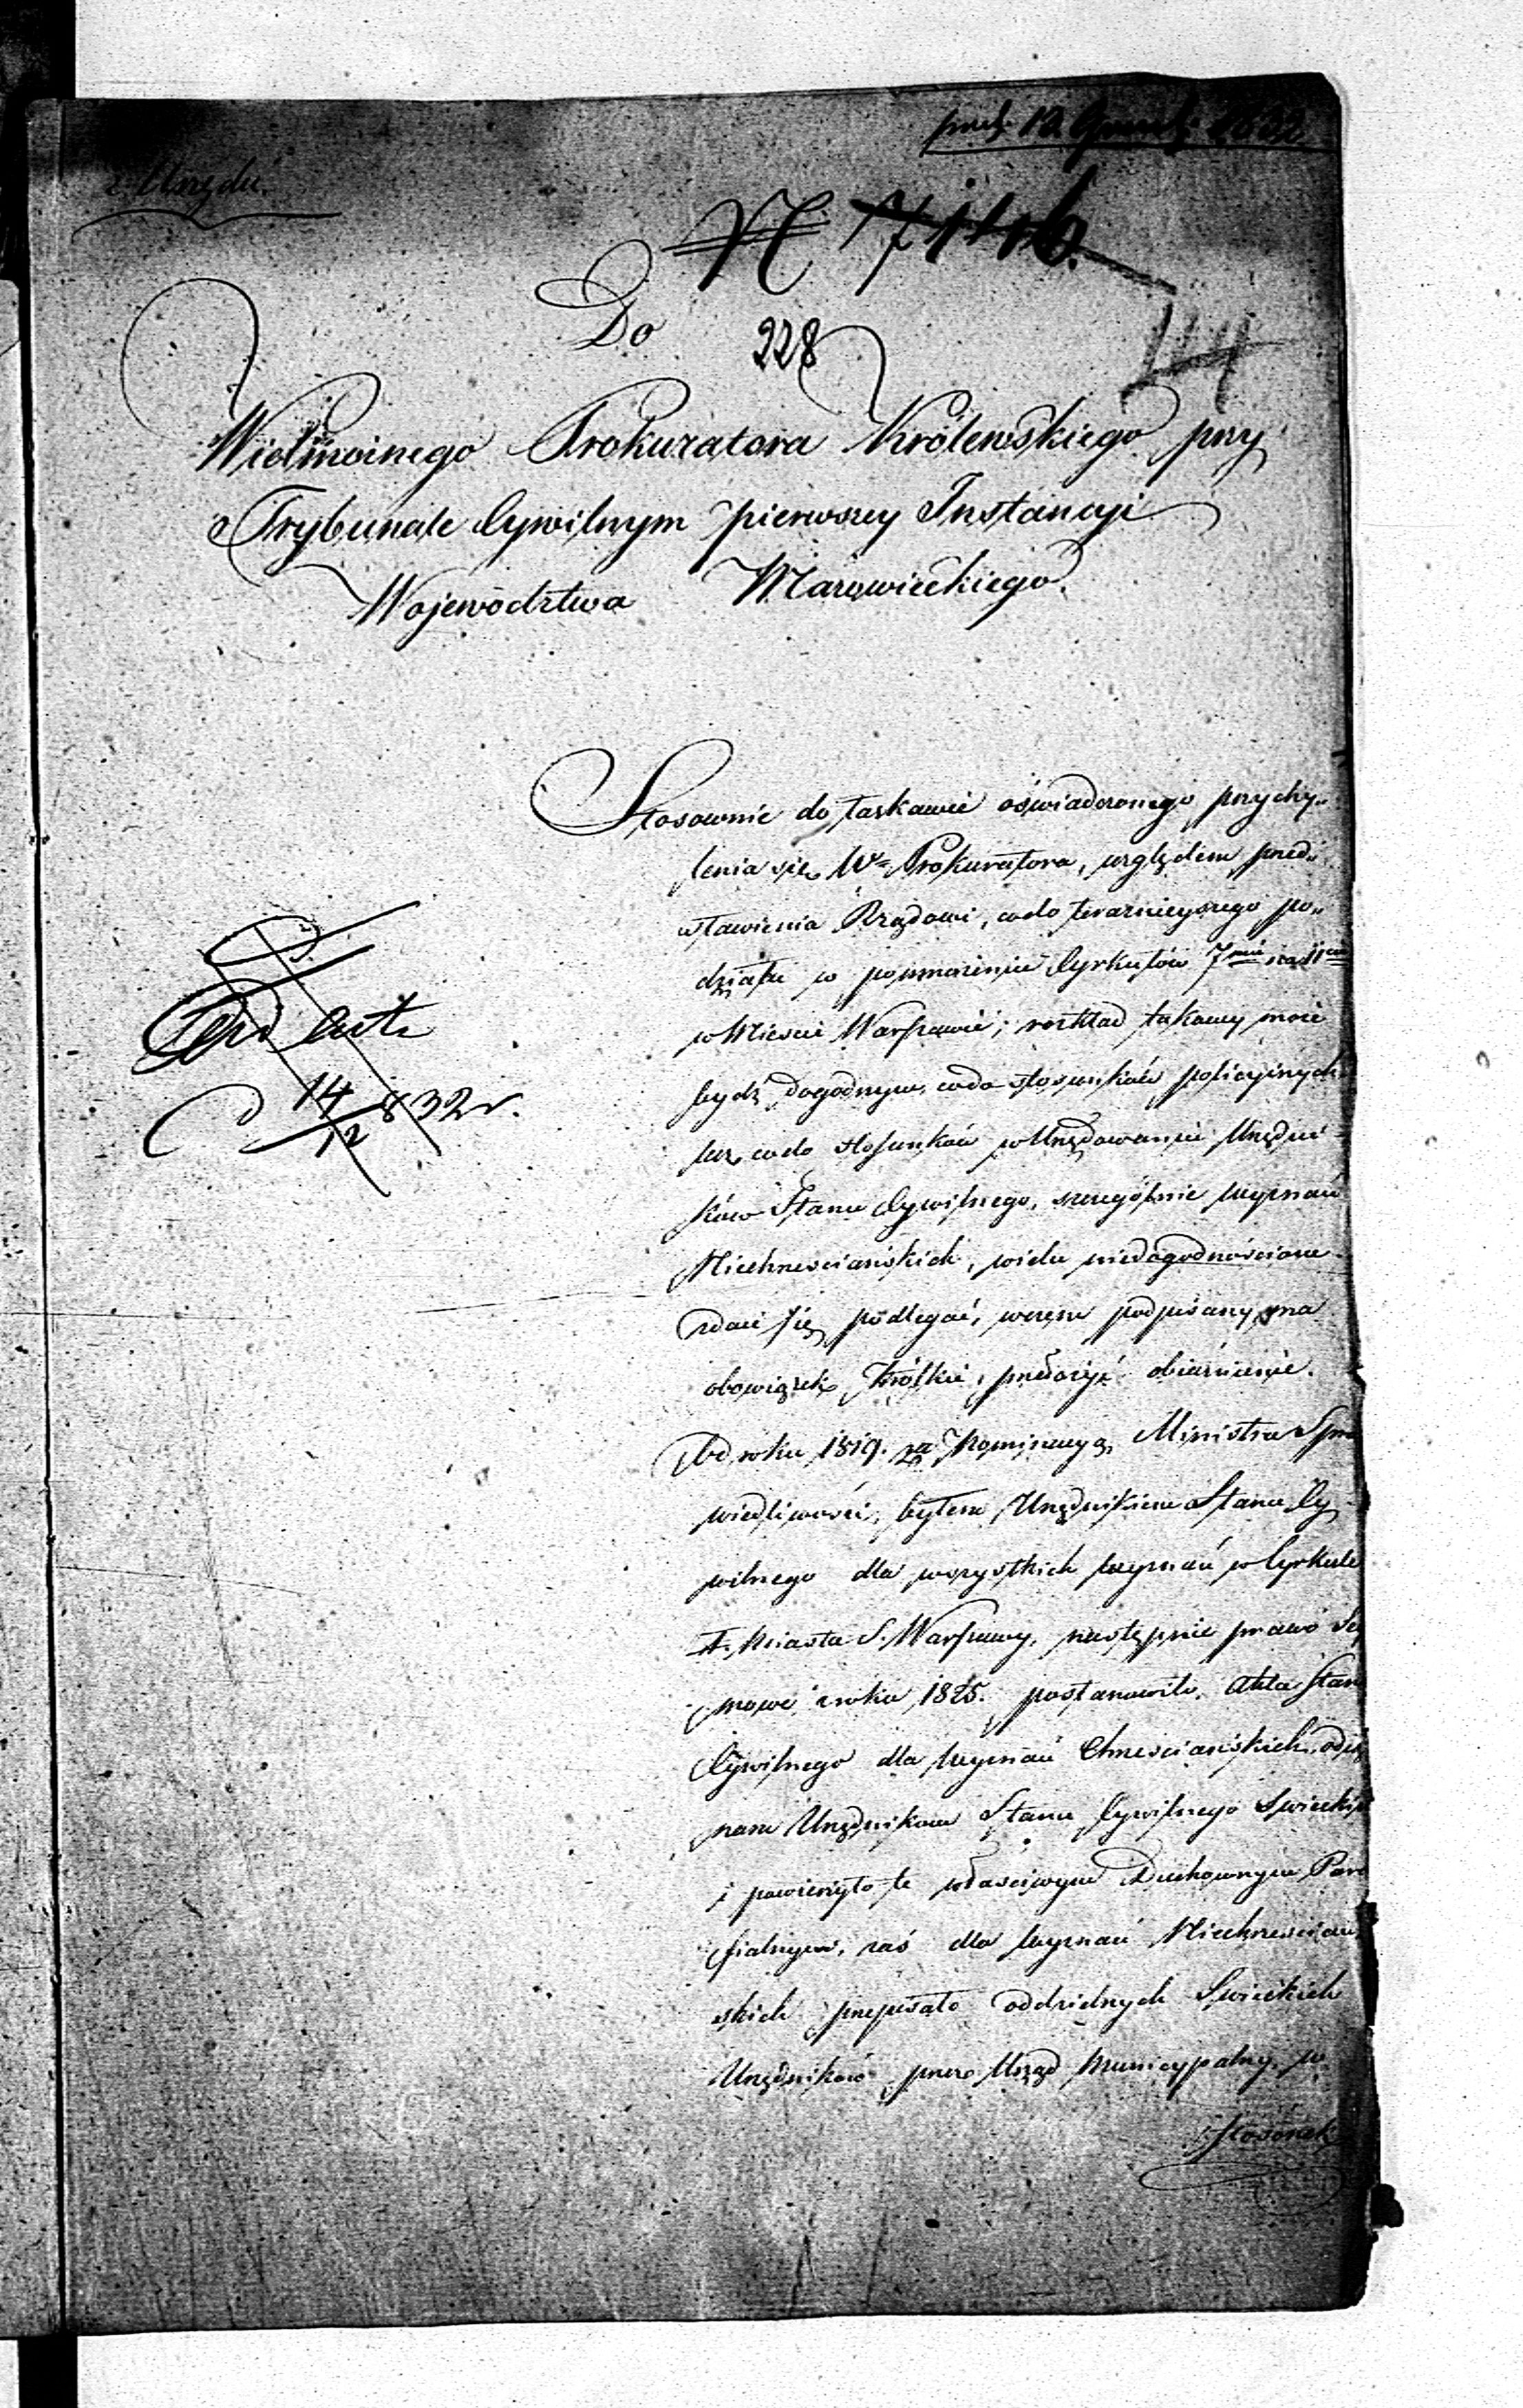 z Urzędu.
12 1832
N
Do 228
Wielmożnego Prokuratora Królewskiego przy
Trybunale Cywilnym pierwszey Instancyi
Województwa Mazowieckiego.
Stosownie do łaskawie oświadczonego przychy„
lenia się W° Prokuratora, względem przed„
stawienia Rządowi, co do teraznieyszego po„
działu w pomnożenie Cyrkułów 7miu na 11cie
w Mieście Warszawie; rozkład takowy może
bydź dogodnym, co do stosunków policyinych
lecz co do stosunków w Urzędowaniu Urzędni-
ków Stanu Cywilnego, szczególnie wyznań
Niechrześciańskich, wielu niedogodnościom
zdaie się podlegać, w czem podpisany ma
obowiązek krótkie przełożyć obiaśnienie.
Od roku 1819. za Nominacyą Ministra Spra
wiedliwości, byłem Urzędnikiem Stanu Cy
wilnego dla wszystkich wyznań w Cyrkule
Miasta S. Warszawy, następnie prawo Sey
mowe z roku 1825. postanowiło, Akta Stanu
Cywilnego dla wyznań Chrześciańskich, odią
nam Urzędnikom Stanu Cywilnego Świeckim
i powierzyło te właściwym Duchownym Para
fialnym, zaś dla wyznań Niechrześciań
skich przepisało oddzielnych Świeckich
Urzędników przez Urząd Municypalny, w
Stosunek
14/12 832 r.